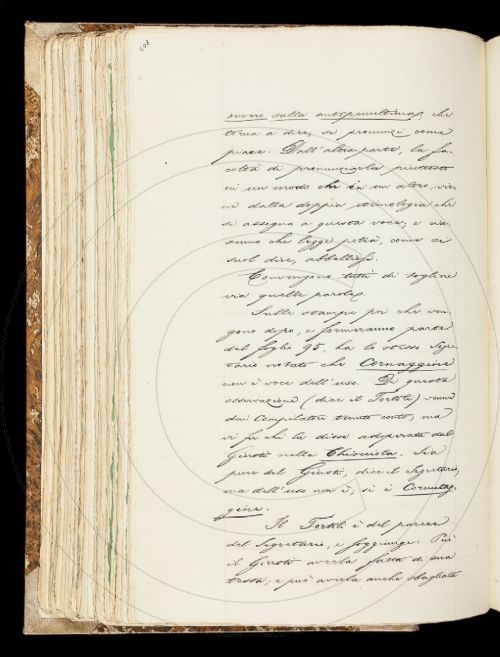 408
severe sulla antepenultima, che
torna a dire, si pronunzi come
piace. Dall'altra parte, la fa-
coltà di pronunziarla piuttosto
in un modo che in un altro, vie-
ne dalla doppia etimologia che
si assegna a questa voce, e cia-
scuno che legge potrà, come si
suol dire, abbellirsi.
Convengono tutti di togliere
via quelle parole.
Sulle stampe poi che ven-
gono dopo, e formeranno parte
del foglio 95, ha lo stesso Segre-
tario notato che Cornaggine
non è voce dell'uso. Di questa
osservazione (dice il Tortoli) venne
dai Compilatori tenuto conto; ma
vi fu chi la disse adoperata dal
Giusti nella Chiocciola. Sia
pure del Giusti, dice il Segretario,
ma dell'uso non è; sì è Cornutag-
gine.
Il Tortoli è del parere
del Segretario, e soggiunge: Può
il Giusti averla fatta di sua
testa; e può averla anche sbagliata